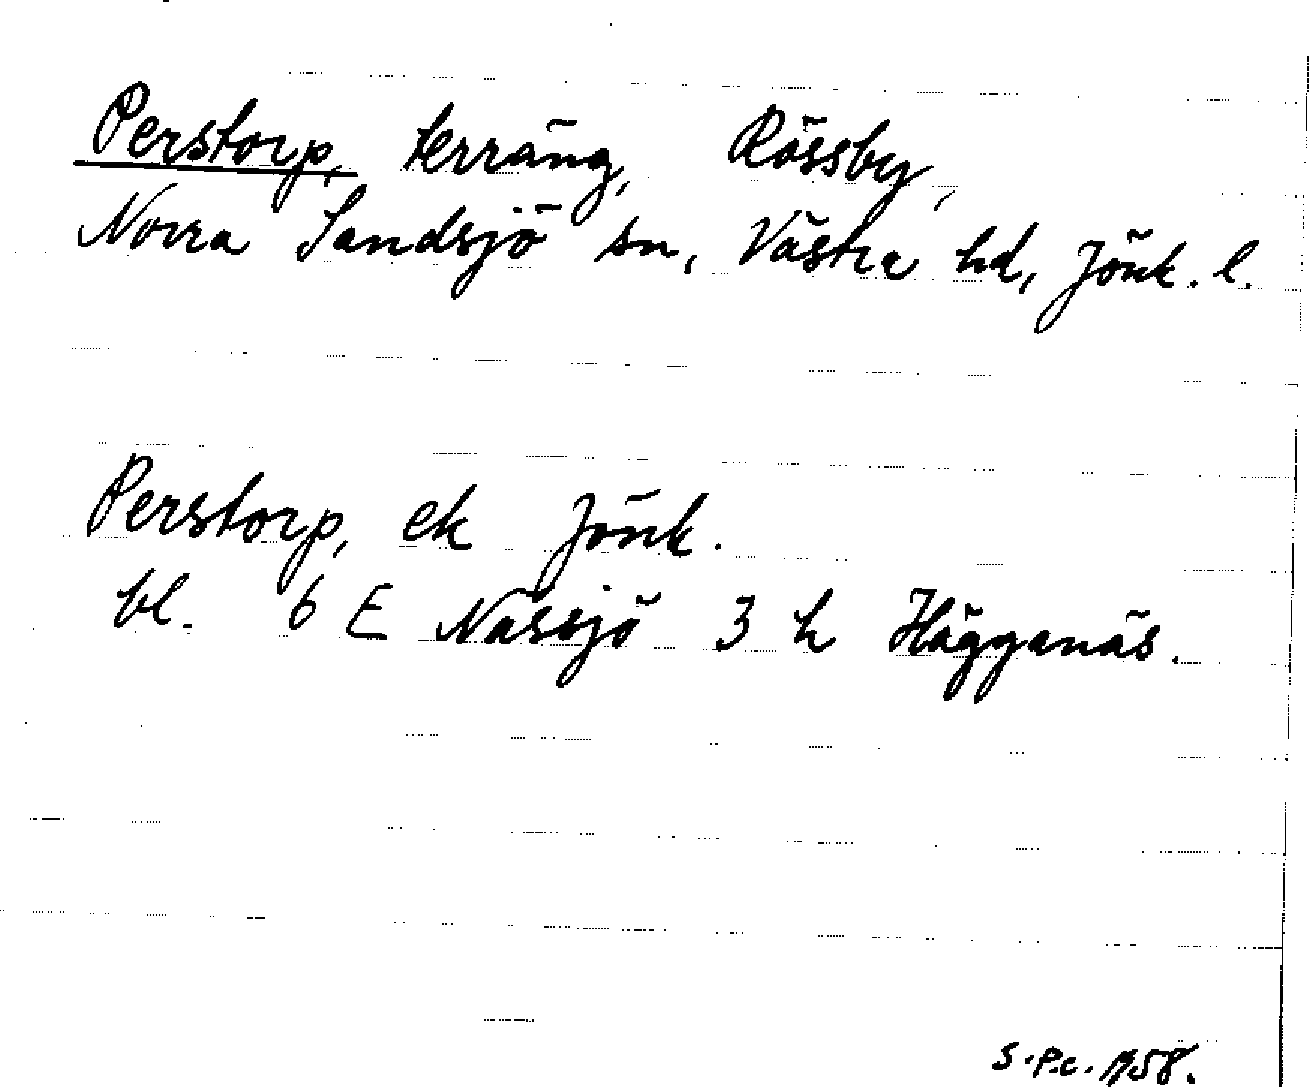 Perstorp, terräng, Rössby,
Norra Sandsjö sn, Västra hd, Jönk. l.
Perstorp, ek Jönk.
bl. 6 E Nässjö 3 h Hägganäs.
S.P.c. 1958.